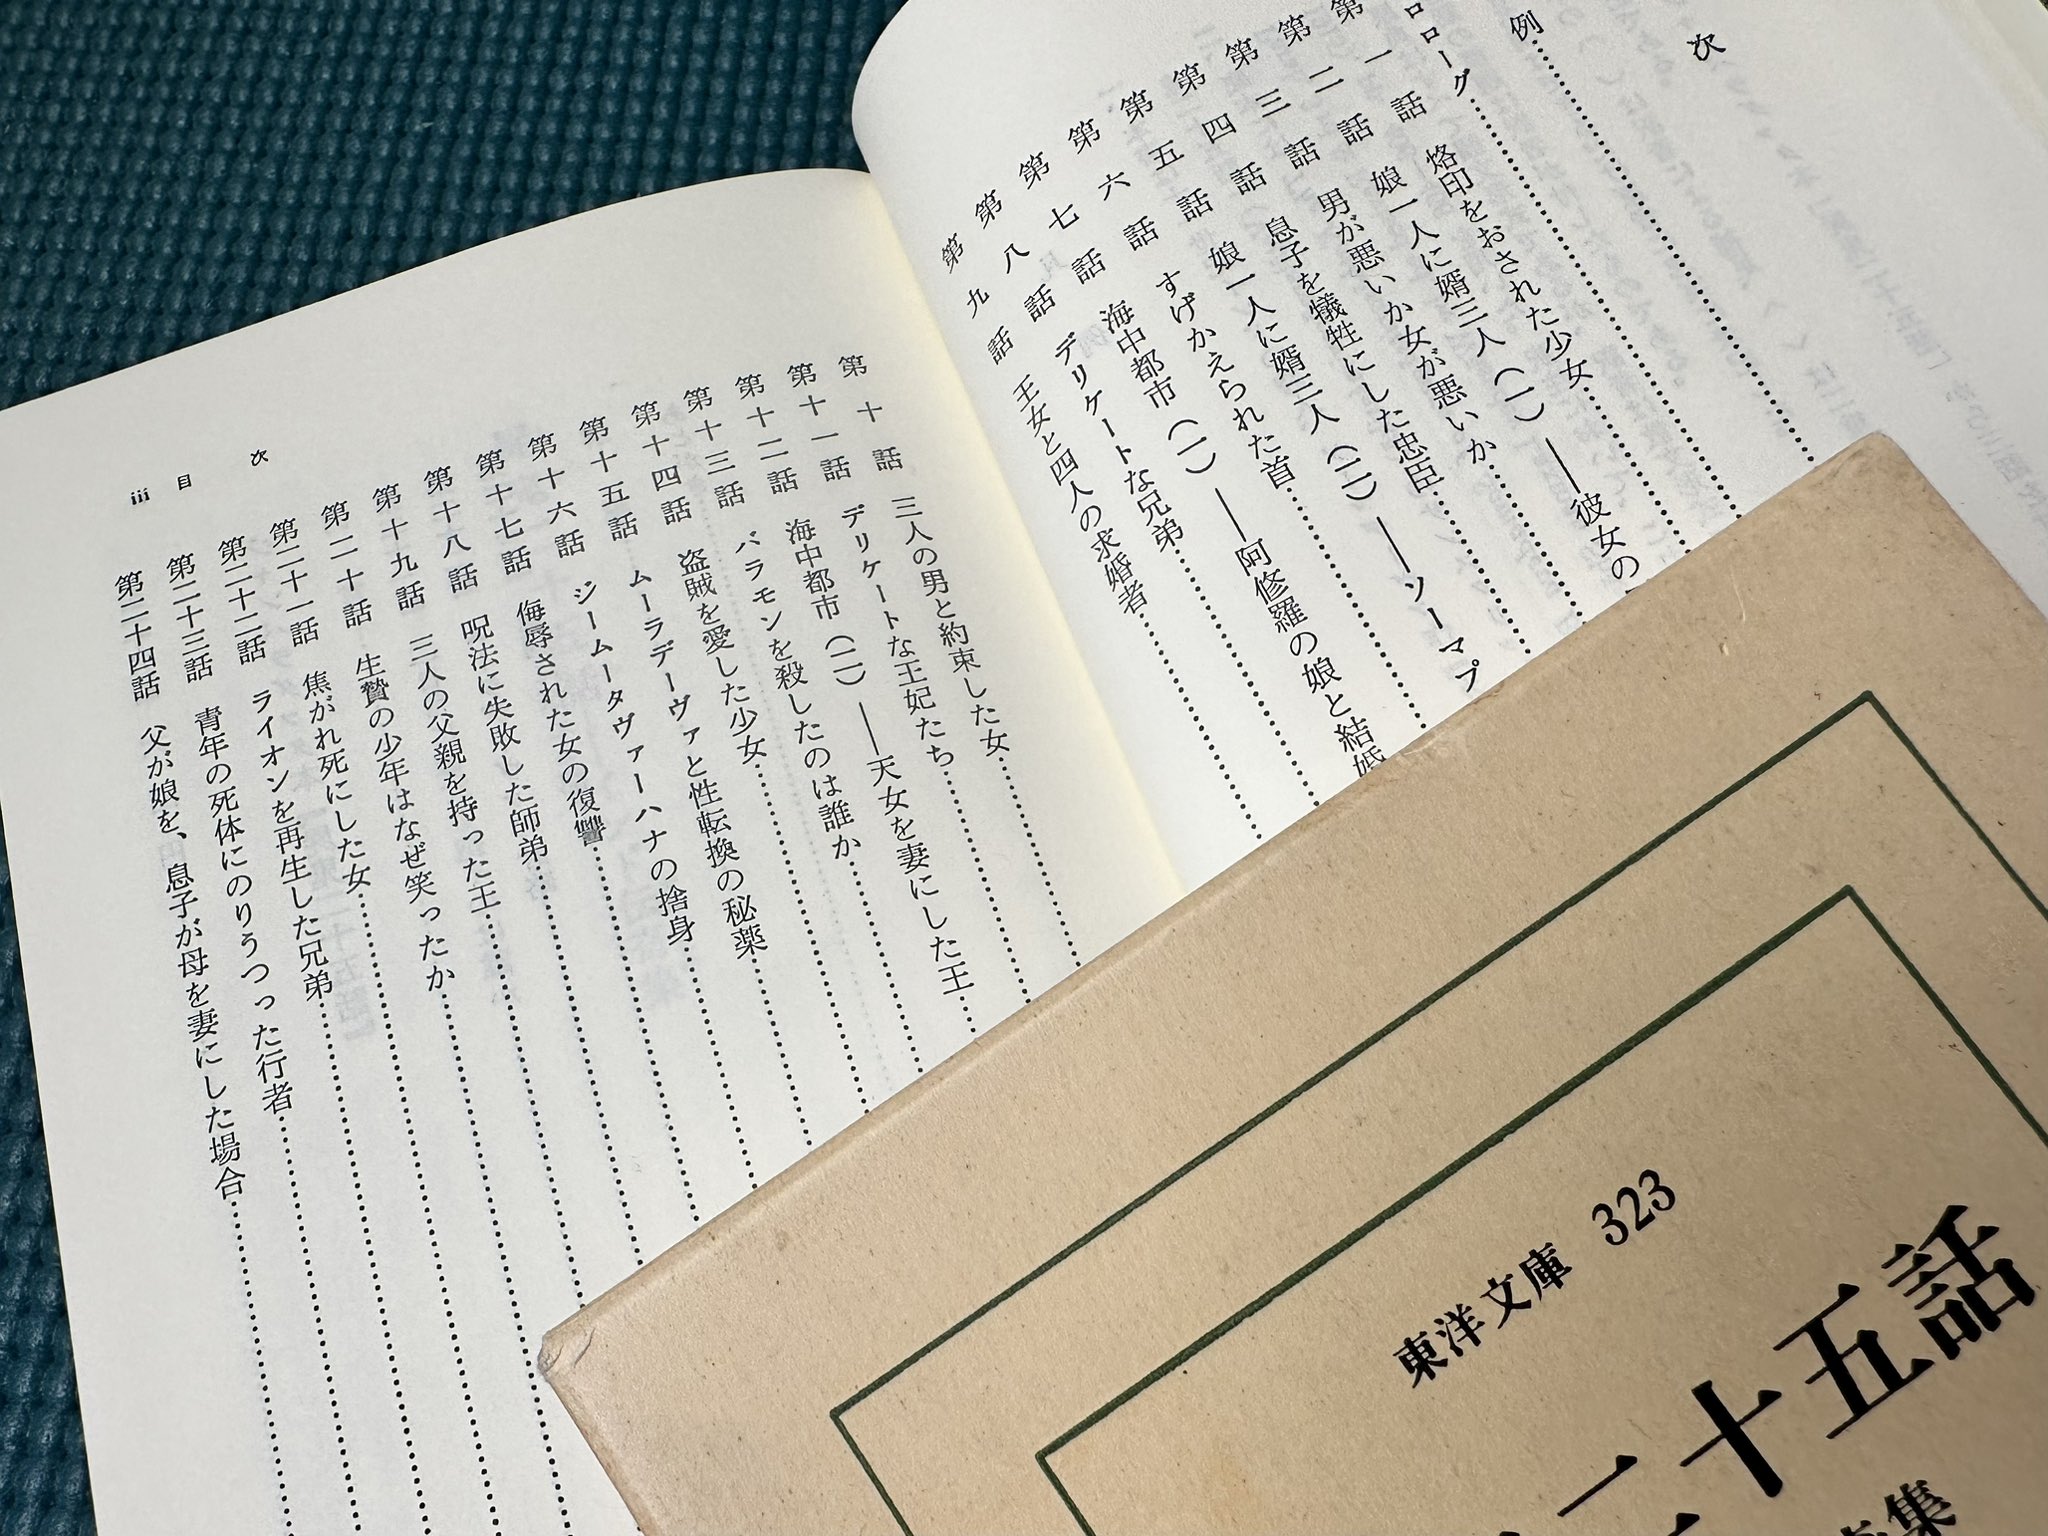 次
例
ローグ
第一話 烙印をおされた少女――彼女の
第二話 娘一人に婿三人(一)――ソーマプ
第三話 男が悪いか女が悪いか
第四話 息子を犠牲にした忠臣
第五話 娘一人に婿三人(二)
第六話 すげかえられた首
第七話 海中都市(一)――阿修羅の娘と結婚
第八話 デリケートな兄弟
第九話 王女と四人の求婚者
第十話 三人の男と約束した女
第十一話 デリケートな王妃たち
第十二話 海中都市(二)――天女を妻にした王
第十三話 バラモンを殺したのは誰か
第十四話 盗賊を愛した少女
第十五話 ムーラデーヴァと性転換の秘薬
第十六話 ジームータヴァーハナの捨身
第十七話 侮辱された女の復讐
第十八話 呪法に失敗した師弟
第十九話 三人の父親を持った王
第二十話 生贄の少年はなぜ笑ったか
第二十一話 焦がれ死にした女
第二十二話 ライオンを再生した兄弟
第二十三話 青年の死体にのりうつった行者
第二十四話 父が娘を、息子が母を妻にした場合
iii 目 次
東洋文庫 323
二十五話
集